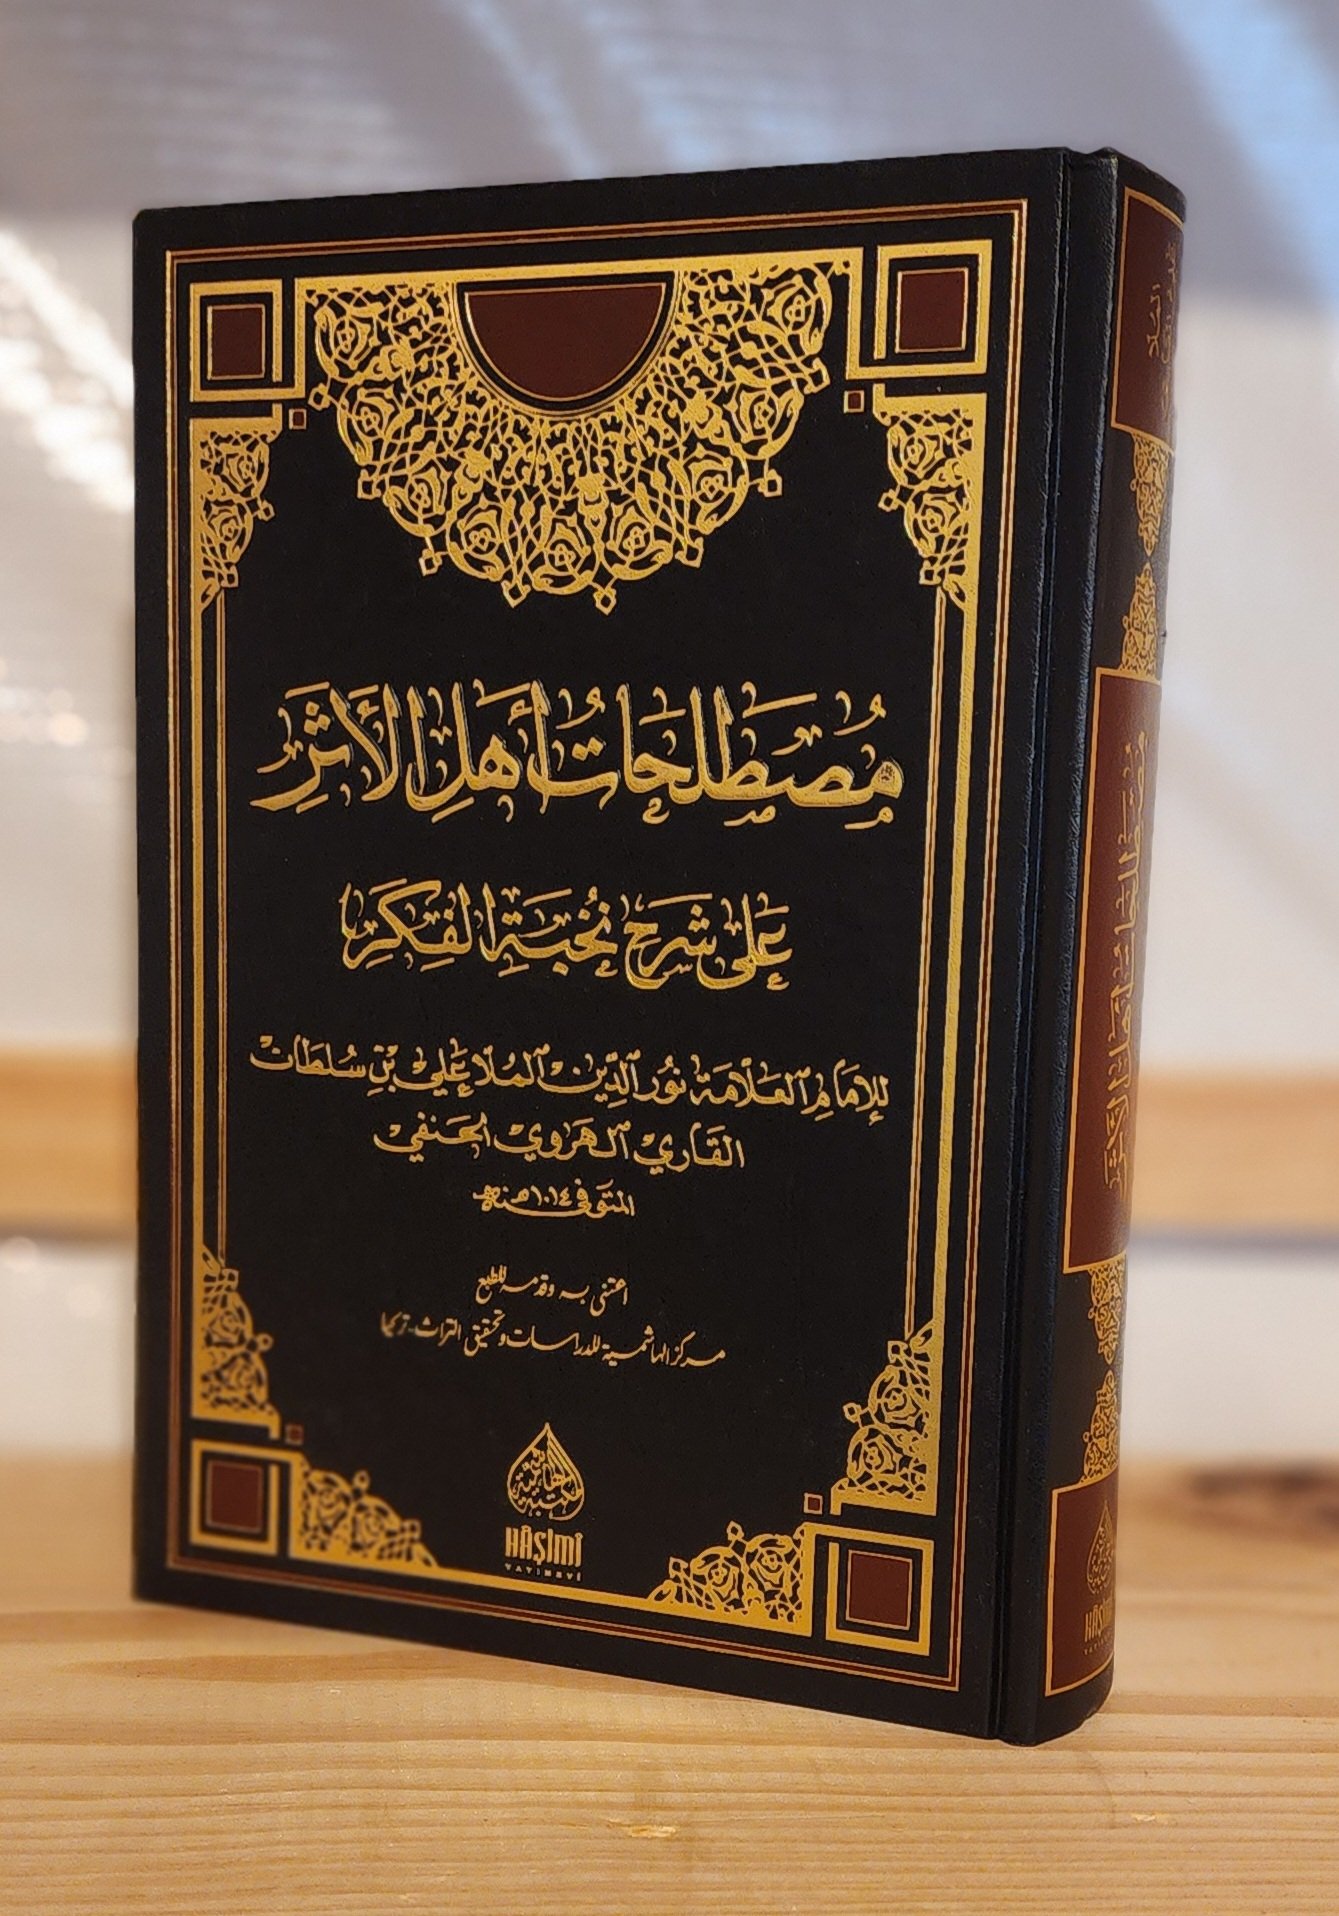 مُصْطَلَحَاتُ أَهْلِ الأَثَرِ
عَلَى شَرْحِ نُخْبَةِ الفِكَرِ
لِلإِمَامِ العَلَّامَةِ نُورُ الدِّين المُلَّا عَلِي بْنِ سُلطَان
القَارِي الهَرَوِي الحَنَفِي
المتوفى سنة ١٠١٤هـ
اعتنى به وقدمه للطبع
مركز الهاشمية للدراسات وتحقيق التراث - تركيا
المكتبة الهاشمية
HÂŞİMİ
YAYINEVİ
مُصْطَلَحَاتُ أَهْلِ الأَثَرِ
HÂŞİMİ